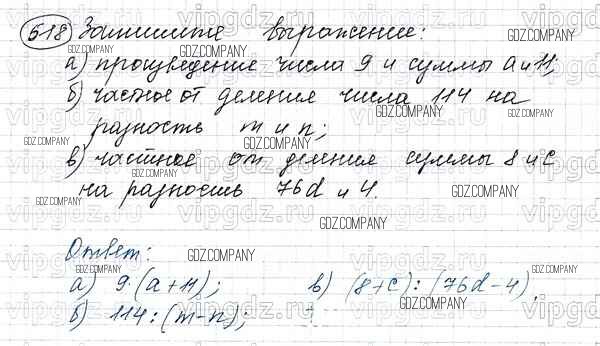 518 Запишите выражение:
а) произведение числа 9 и суммы а и 11;
б) частное от деления числа 114 на
разность m и n;
в) частное от деления суммы 8 и с
на разность 76d и 4.
Ответ:
а) 9·(а+11); в) (8+с):(76d-4)
б) 114:(m-n);
GDZ.COMPANY
vipgdz.ru